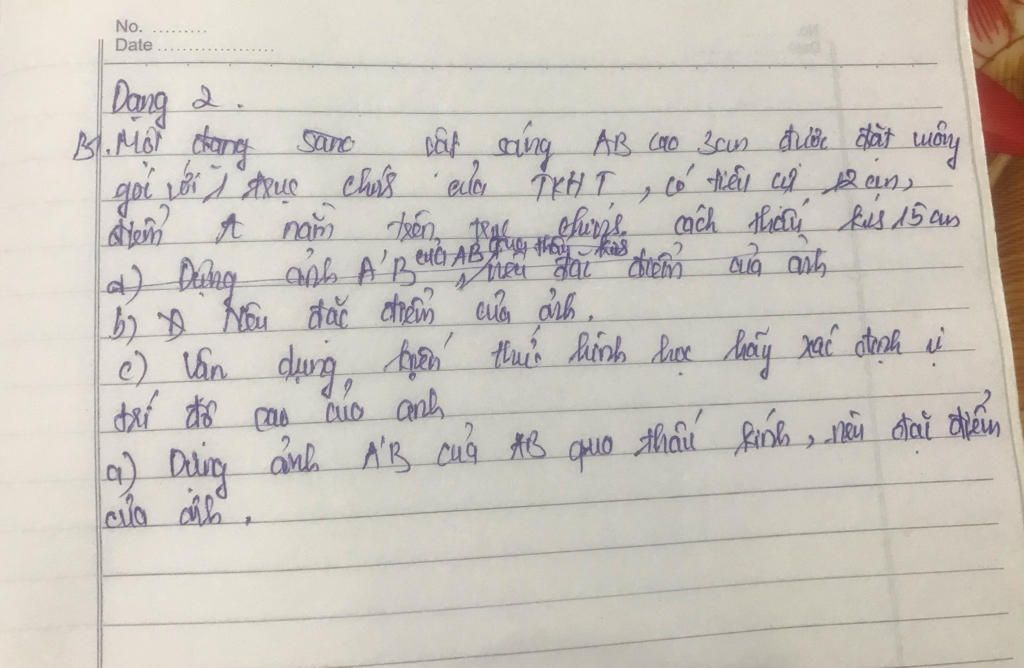 No. .........
Date ...................
Dạng 2.
B1. Một vật sáng AB cao 3cm được đặt vuông
gọi với 1 trục chính của TKHT, có tiêu cự 12 cm,
điểm A nằm trên trục chính cách thấu kính 15 cm
của AB qua thấu kính
a) Dựng ảnh A'B, nêu đặc điểm của ảnh
b) Nêu đặc điểm của ảnh.
c) Vận dụng kiến thức hình học hãy xác định vị
trí độ cao của ảnh
a) Dựng ảnh A'B của AB qua thấu kính, nêu đặc điểm
của ảnh.